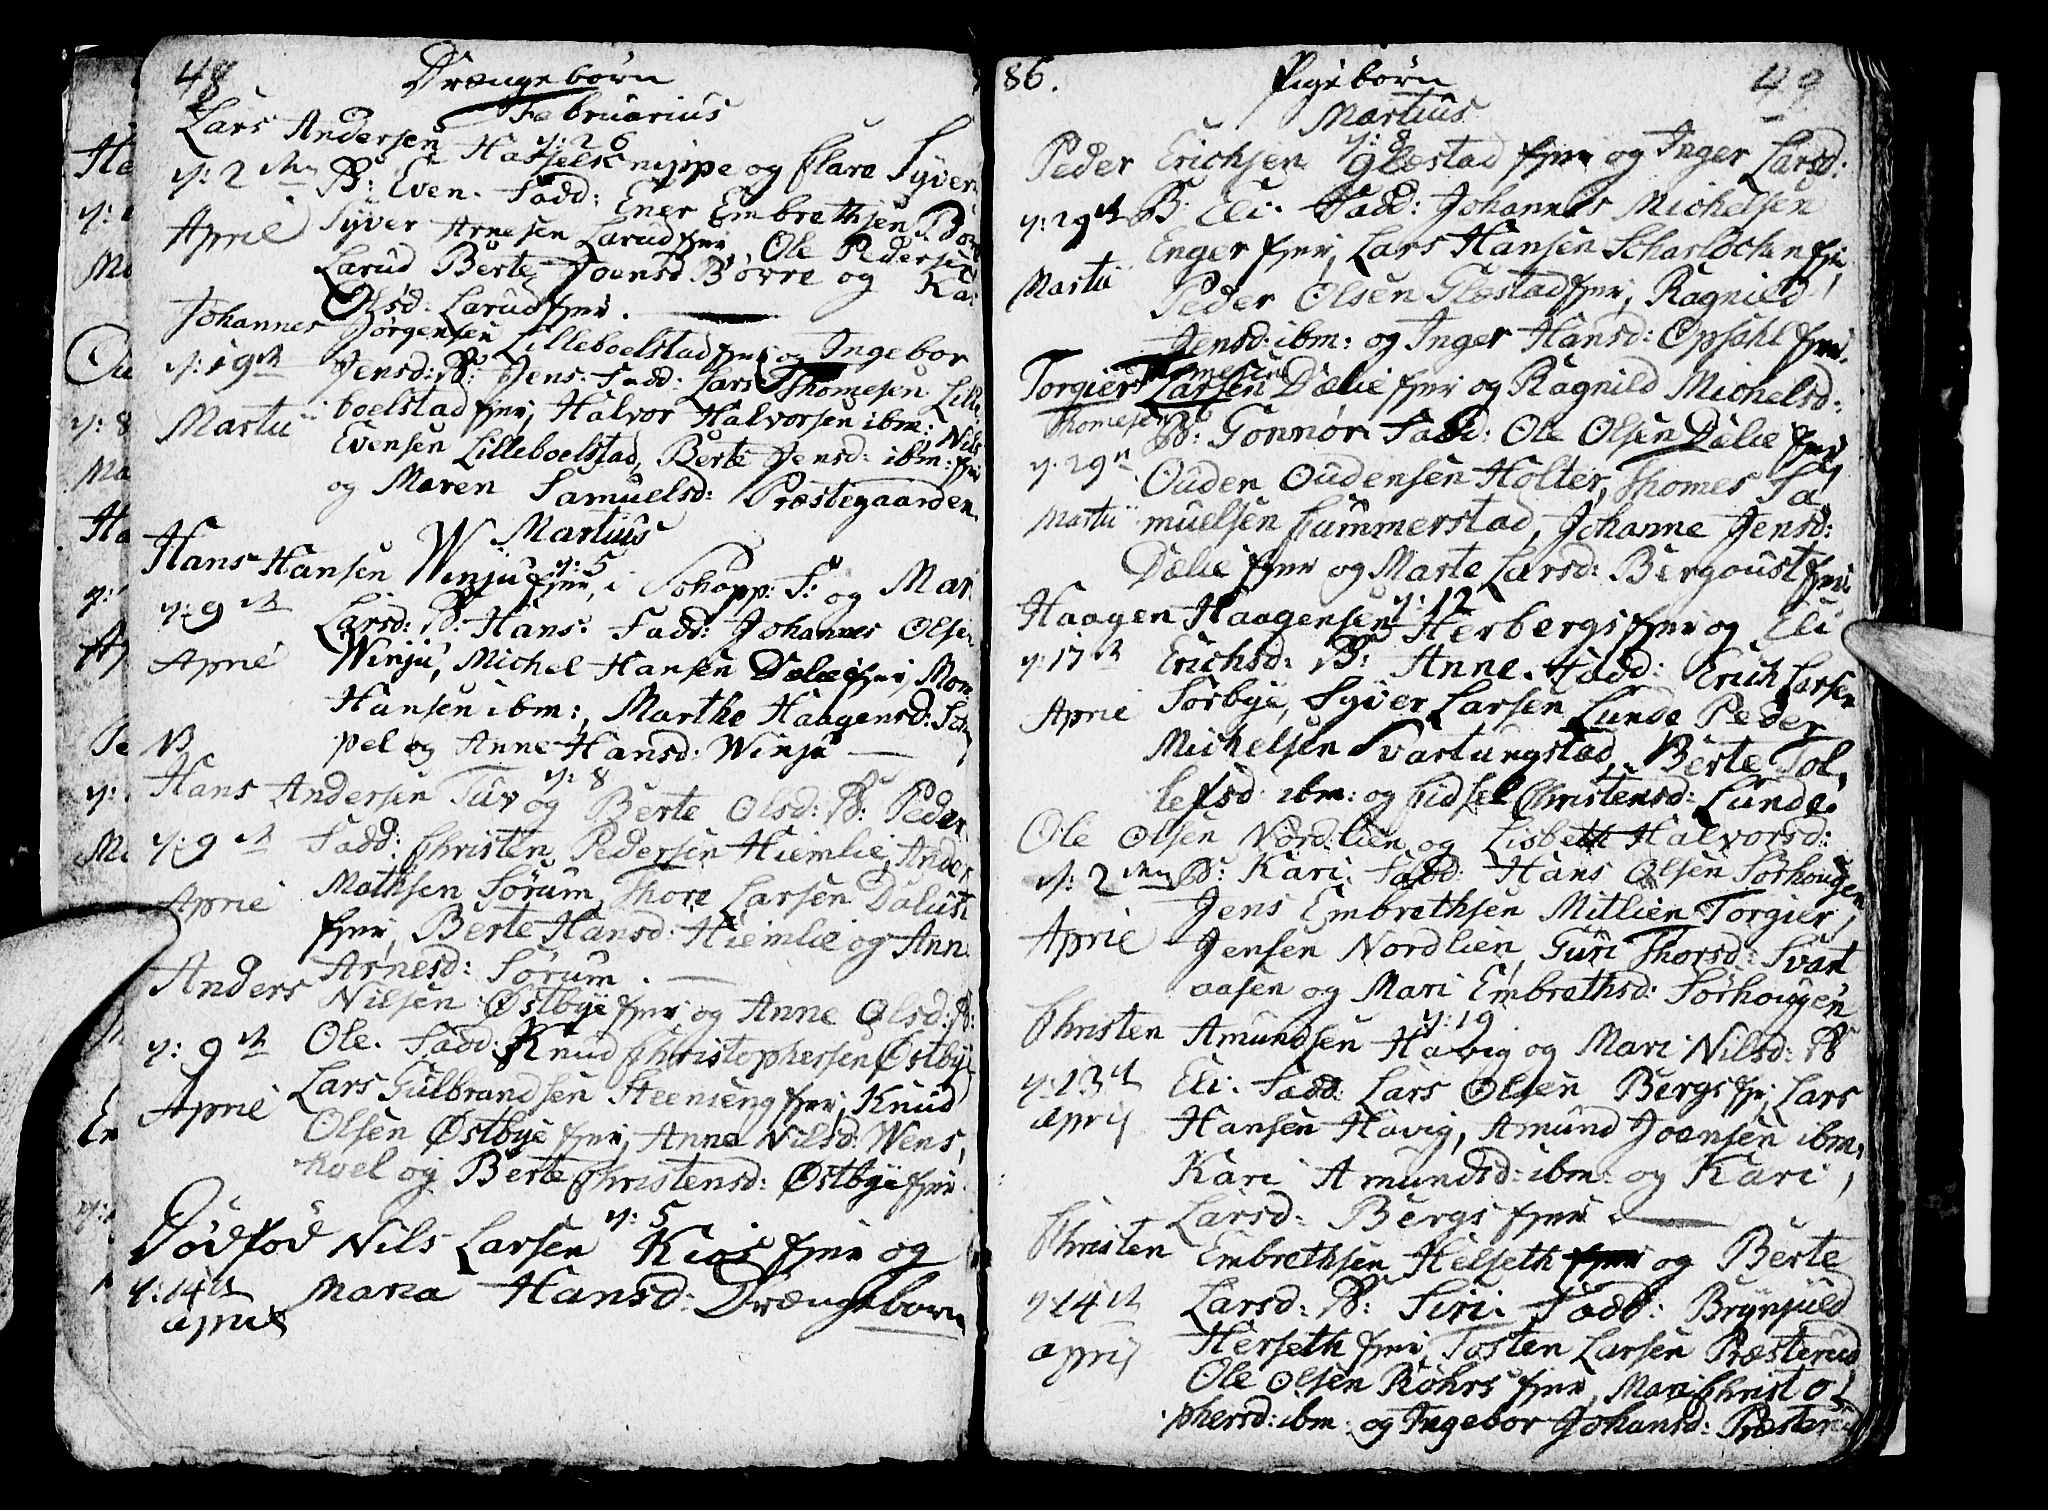 48 Drængebørn
Februarius
Lars Andersen Hasselknippe og Clare Syvers
y: 26
y: 2den B: Even. Fadd: Ener Embrethsen Børre
April Syver Arnesen Larud fjer, Ole Pedersen
Larud Berte Joensd Børre og Kari
Olsd: Larud fjer.
Johannes Jørgensen Lilleboelstad fjer og Ingebor
y: 19de Jensd: B: Jens. Fadd: Lars Thomesen Lille
Martii boelstad fjer, Halvor Halvorsen ibm: Nils
Evensen Lilleboelstad, Berte Jensd: ibm: fjer
og Maren Samuelsd: Præstegaarden
Martius
y: 5
Hans Hansen Winju fjer, i Schopp: S: og Mari
y: 9de Larsd: B: Hans. Fadd: Johannes Olsen
April Winju, Michel Hansen Dælie fjer, Mons
Hansen ibm:, Marthe Haagensd:
NB pel og Anne Hansd: Winju
y: 8
Hans Andersen Tuv og Berte Olsd: B: Peder
y: 9de Fadd: Christen Pedersen Hiemlie, Anders
April Mathsen Sørum, Thore Larsen Daluti
fjer, Berte Hansd: Hiemlie og Anne
Arnesd: Sørum.
Anders Nilsen Østbye fjer og Anne Olsd: B:
y: 9de Ole. Fadd: Knud Christophersen Østbye
April Lars Gulbrandsen Steenseng fjer, Knud
Olsen Østbye fjer, Anne Nilsd: Wens,
hoel og Berte Christensd: Østbye fjer.
y: 5
Dødfød Nils Larsen Kios fjer og
y: 14de Maria Hansd: Drængeborn
april
86. Pigebørn 49
Martius
y: 8
Peder Erichsen Glæstad fjer og Inger Larsd:
y: 29de B: Eli. Fadd: Johannes Michelsen
Enger fjer, Lars Hansen Scharlochen fjer
Martii Peder Olsen Glæstad fjer, Ragnild
Jensd: ibm: og Inger Hansd: Opsahl fjer.
Thomesen
Torgier Larsen Dælie fjer og Ragnild Michelsd:
Thomesen B: Gonnor. Fadd: Ole Olsen Dælie fjer
y: 29n Ouden Oudensen Holter, Thomes Sa
Martii muelsen Gummerstad, Johanne Jensd:
Dælie fjer og Marte Larsd: Bergoust fjer.
y: 12
Haagen Haagensen Herbergs fjer og Eli
y: 17de Erichsd: B: Anne. Fadd: Erich Larsen
April Sørbye, Syver Larsen Lunde Peder
Michelsen Svartungstad, Berte Tol,
lefsd ibm: og Sidsel Christensd: Lunde.
Ole Olsen Nordlien og Lisbeth Halvorsd:
y: 2den B: Kari. Fadd: Hans Olsen Sørhougen
April Jens Embrethsen Mitlien Torgier
Jensen Nordlien, Guri Thorsd: Svart
aasen og Mari Embrethsd: Sørhougen
y: 19
Christen Amundsen Havig og Mari Nilsd: B
y: 13de Eli. Fadd: Lars Olsen Bergs fjer, Lars
april Hansen Havig, Amund Joensen ibm,
Kari Amundsd: ibm: og Kari
Larsd: Bergs fjer.
Christen Embrethsen Helseth fjer og Berte
y: 14de Larsd: B: Siri. Fadd: Brynjuld
april Herseth fjer, Tosten Larsen Præsterud
Ole Olsen Røhrs fjer, Mari Christo
phersd: ibm: og Ingebor Johansd: Præsterud